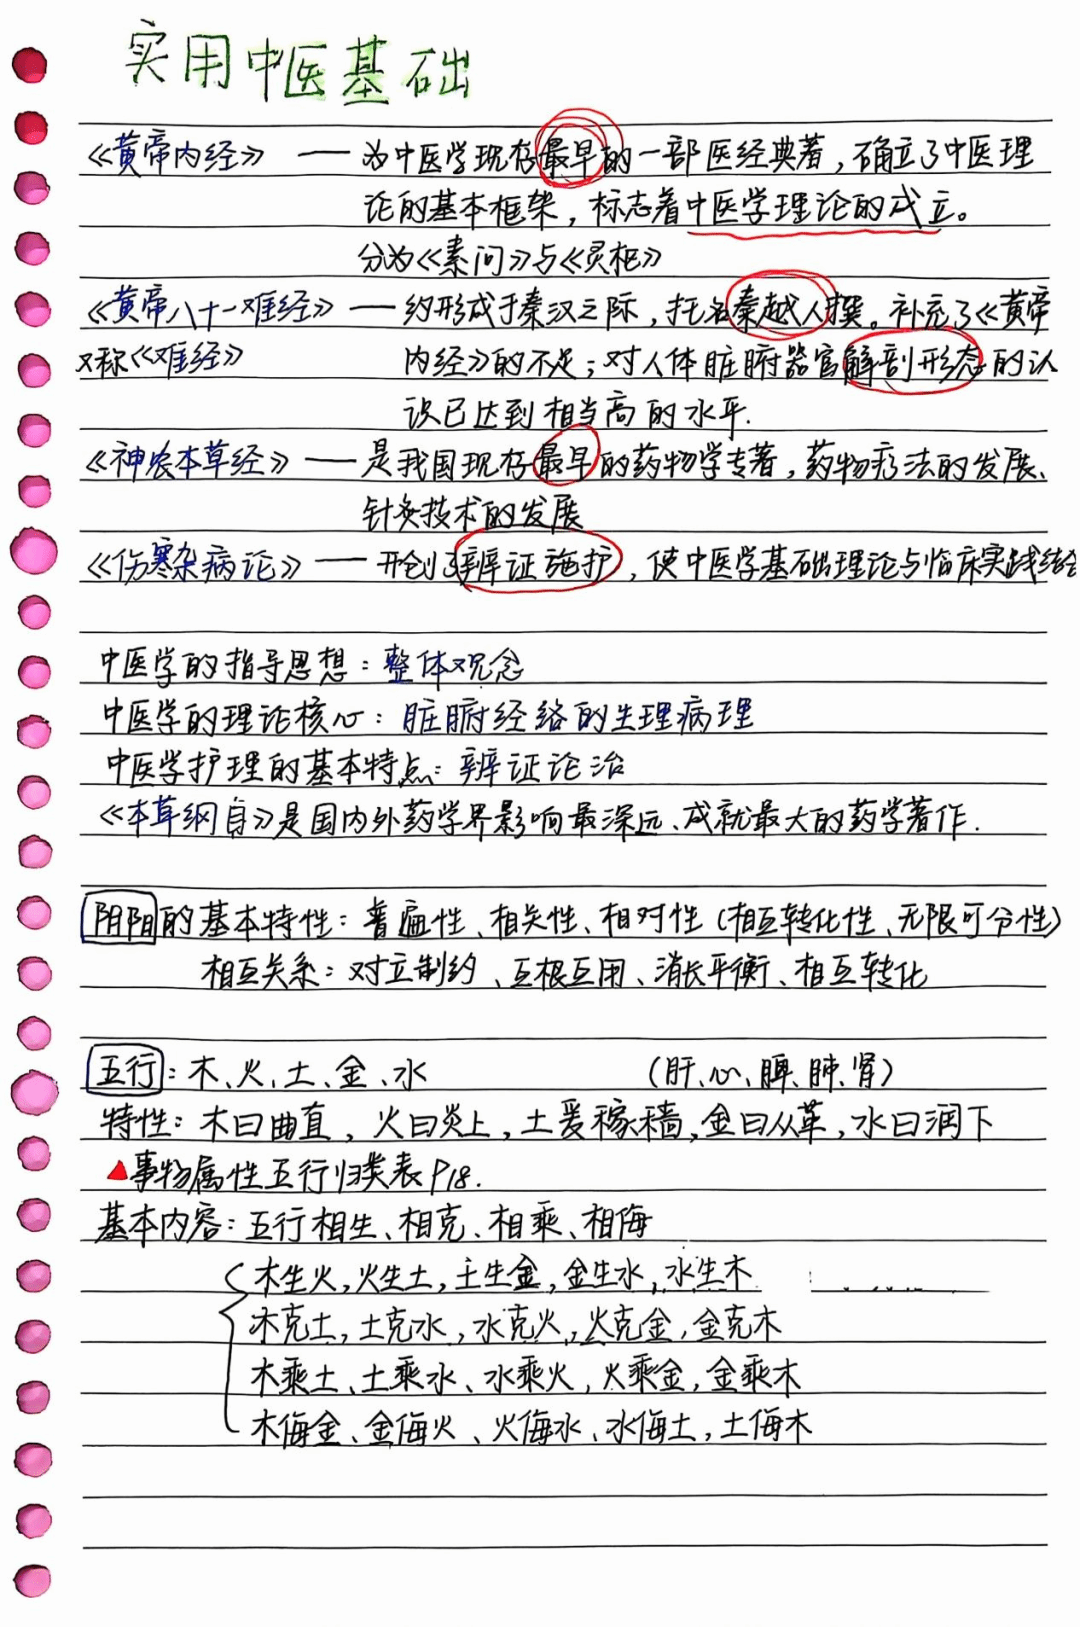 实用中医基础
《黄帝内经》 —— 为中医学现存最早的一部医经典著，确立了中医理
论的基本框架，标志着中医学理论的成立。
分为《素问》与《灵枢》
《黄帝八十一难经》 —— 约形成于秦汉之际，托名秦越人撰。补充了《黄帝
又称《难经》 内经》的不足；对人体脏腑器官解剖形态的认
识已达到相当高的水平.
《神农本草经》 —— 是我国现存最早的药物学专著，药物疗法的发展、
针灸技术的发展
《伤寒杂病论》 —— 开创了辨证施护，使中医学基础理论与临床实践结合
中医学的指导思想：整体观念
中医学的理论核心：脏腑经络的生理病理
中医学护理的基本特点：辨证论治
《本草纲目》是国内外药学界影响最深远、成就最大的药学著作.
阴阳的基本特性：普遍性、相关性、相对性（相互转化性、无限可分性）
相互关系：对立制约、互根互用、消长平衡、相互转化
五行：木、火、土、金、水 （肝、心、脾、肺、肾）
特性：木曰曲直，火曰炎上，土爰稼穑，金曰从革，水曰润下
▲事物属性五行归类表P18.
基本内容：五行相生、相克、相乘、相侮
木生火，火生土，土生金，金生水，水生木
木克土，土克水，水克火，火克金，金克木
木乘土、土乘水、水乘火，火乘金，金乘木
木侮金、金侮火、火侮水、水侮土，土侮木